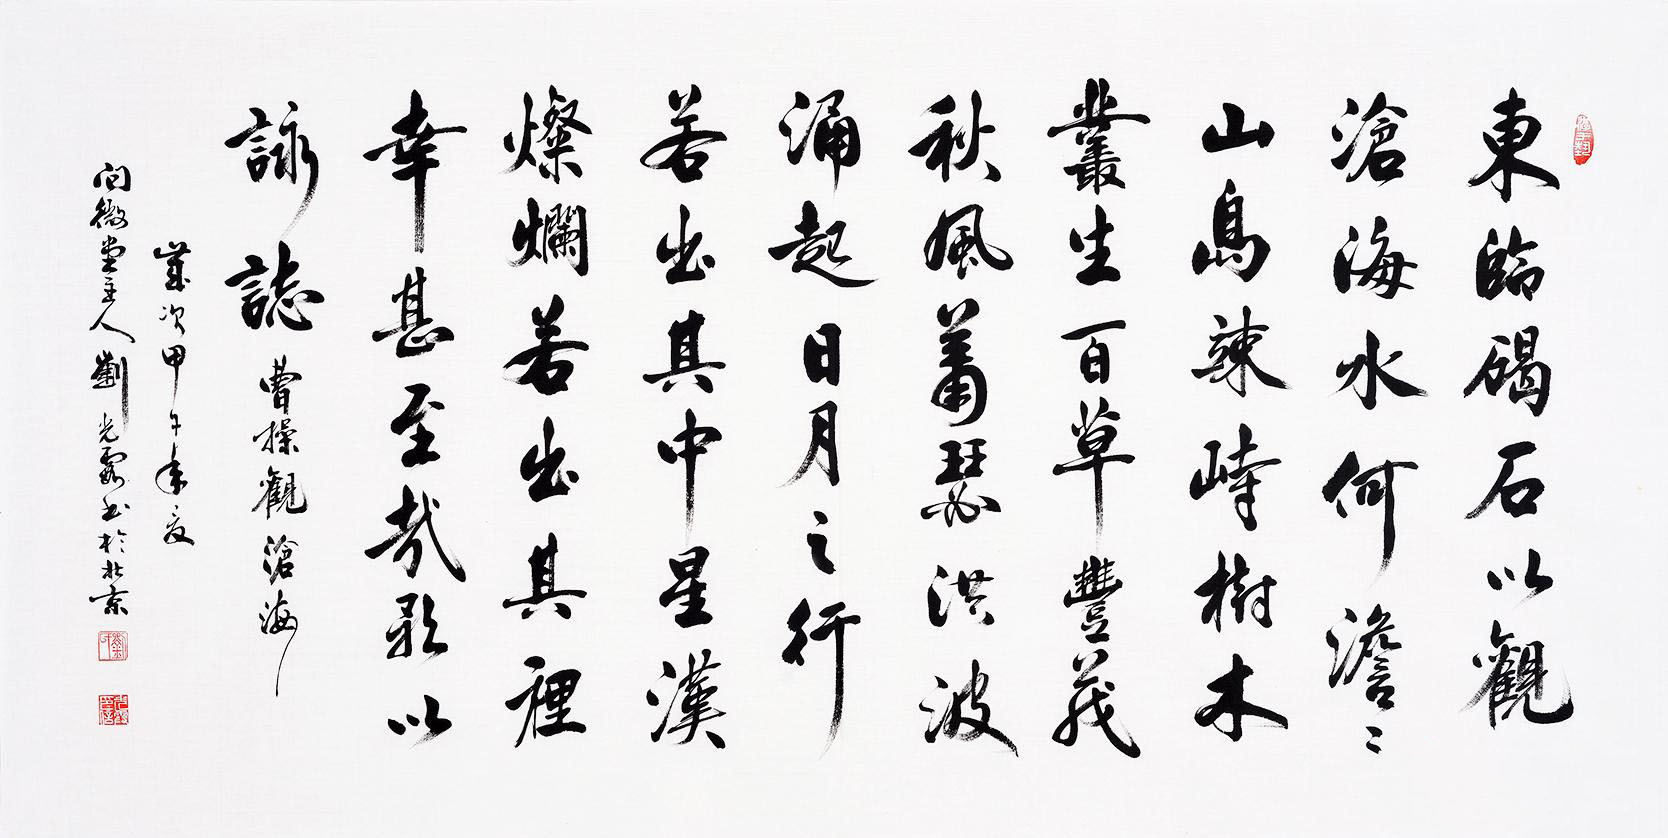 東臨碣石以觀
滄海水何澹〻
山島竦峙樹木
叢生百草豐茂
秋風蕭瑟洪波
涌起日月之行
若出其中星漢
燦爛若出其裡
幸甚至哉歌以
詠誌 曹操觀滄海
歲次甲午年夏
問微堂主人劉光霞书於北京